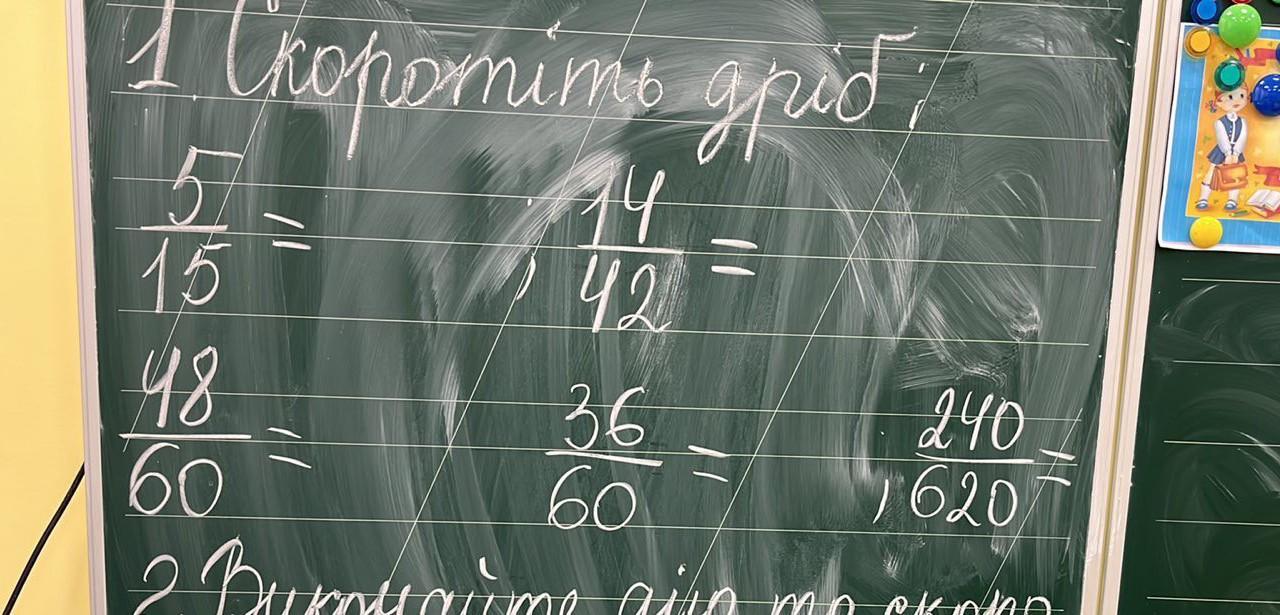 1 Скоротіть дріб:
5/15 = ; 14/42 =
48/60 = 36/60 = ; 240/620 =
2 Виконайте дію та скоро